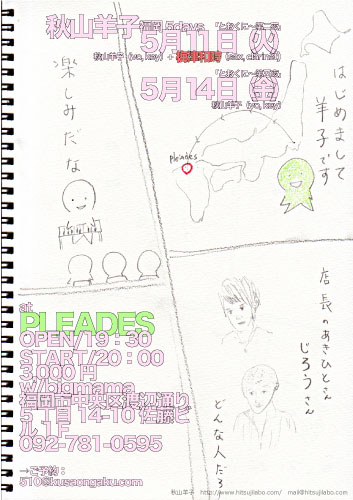 秋山羊子 福岡 5days
5月11日（火）
秋山羊子 (vo, key) +
(sax, clarinet)
5月14日（金）
秋山羊子 (vo, key)
はじめまして
羊子です
楽しみだな
pleades
店長のあきひとさん
じろうさん
どんな人だろ
at
PLEADES
OPEN/19：30
START/20：00
3,000円
w/bigmama
福岡市中央区渡辺通り
5丁目14-10 佐藤ビ
ル 1F
092-781-0595
→ご予約：
510@kusaongaku.com
秋山羊子 http://www.hitsujilabo.com/ mail@hitsujilabo.com